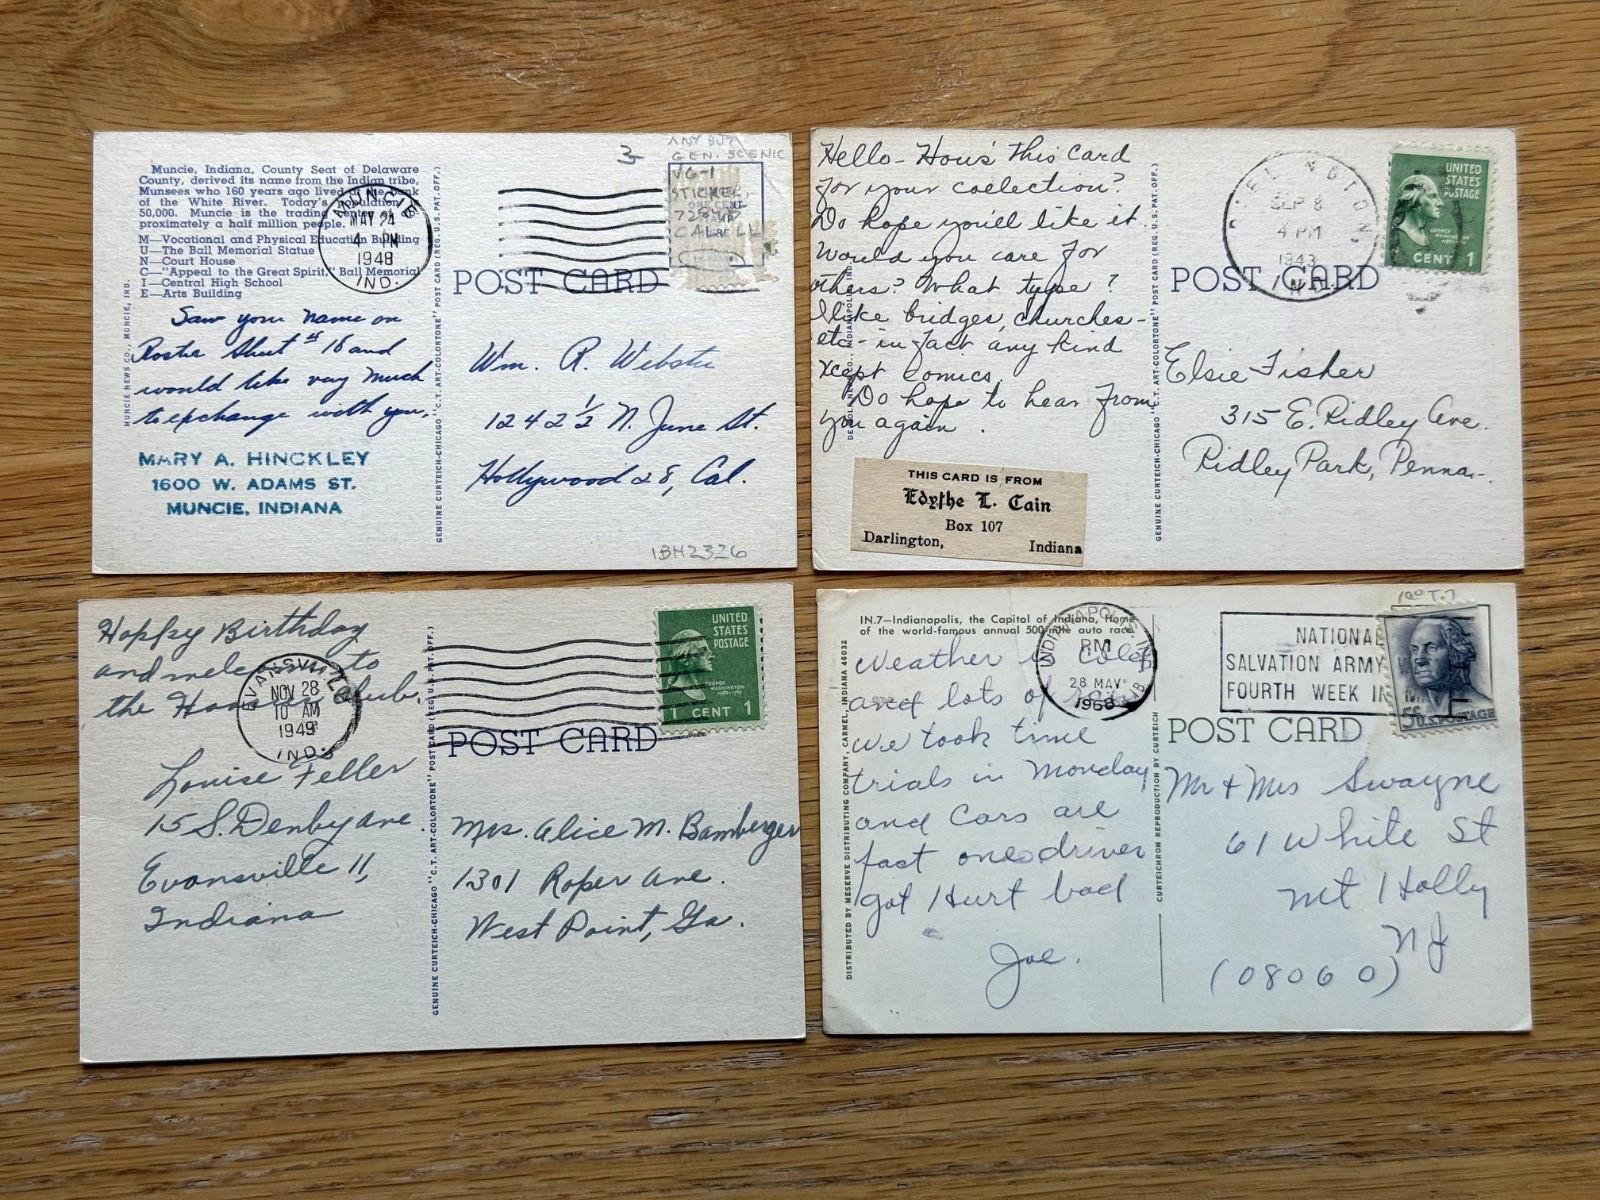 Muncie, Indiana, County Seat of Delaware
County, derived its name from the Indian tribe,
Munsees who 160 years ago lived at the bank
of the White River. Today's population
50,000. Muncie is the trading center of
proximately a half million people.
M—Vocational and Physical Education Building
U—The Ball Memorial Statue
N—Court House
C—"Appeal to the Great Spirit," Ball Memorial
I—Central High School
E—Arts Building
MUNCIE NEWS CO., MUNCIE, IND.
MUNCIE
MAY 24
4 PM
1948
IND.
Saw your name on
Roster Sheet # 16 and
would like very much
to exchange with you.
MARY A. HINCKLEY
1600 W. ADAMS ST.
MUNCIE, INDIANA
GENUINE CURTEICH-CHICAGO "C.T. ART-COLORTONE" POST CARD (REG. U.S. PAT. OFF.)
3-
ANY BUT
GEN. SCENIC
VG-1
STICKER,
ONE CENT
POST CARD
Wm. R. Webster
1242 1/2 N. June St.
Hollywood 28, Cal.
1BH2326
Hello - How's This Card
for your collection?
Do hope you'll like it.
Would you care for
others? What type?
I like bridges, churches -
etc - in fact any kind
xcept comics.
Do hope to hear from
you again.
THIS CARD IS FROM
Edythe L. Cain
Box 107
Darlington, Indiana
GENUINE CURTEICH-CHICAGO "C.T. ART-COLORTONE" POST CARD (REG. U.S. PAT. OFF.)
DARLINGTON,
SEP 8
4 PM
1943
IND.
UNITED
STATES
POSTAGE
GEORGE
WASHINGTON
1 CENT 1
POST CARD
Elsie Fisher
315 E. Ridley Ave.
Ridley Park, Penna-.
Happy Birthday
and welcome to
the Hoosier Club.
EVANSVILLE
NOV 28
10 AM
1949
IND.
Louise Feller
15 S. Denby Ave.
Evansville 11,
Indiana
GENUINE CURTEICH-CHICAGO "C.T. ART-COLORTONE" POST CARD (REG. U.S. PAT. OFF.)
UNITED
STATES
POSTAGE
GEORGE
WASHINGTON
1 CENT 1
POST CARD
Mrs. Alice M. Bamberger
1301 Roper Ave.
West Point, Ga.
IN.7—Indianapolis, the Capital of Indiana, Home
of the world-famous annual 500-mile auto race.
DISTRIBUTED BY MESERVE DISTRIBUTING COMPANY, CARMEL, INDIANA 46032
INDIANAPOLIS, IN
PM
28 MAY
1968
Weather is cold
and lots of rain
we took time
trials in Monday
and cars are
fast one driver
got Hurt bad
Joe.
CURTEICHROM REPRODUCTION BY CURTEICH
NATIONAL
SALVATION ARMY
FOURTH WEEK IN MAY
5¢ U.S. POSTAGE
POST CARD
Mr & Mrs Swayne
61 White St
Mt Holly
NJ
(08060)